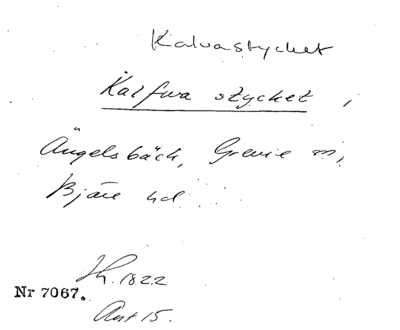 Kalvastycket
Kalfwa stycket,
Ängelsbäck, Grevie m,
Bjäre hd
Sk. 1822
Nr 7067.
Akt 15.